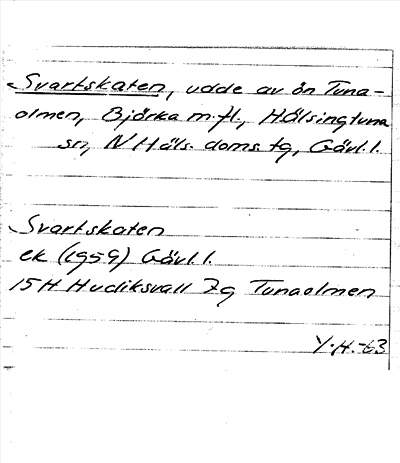 Svartskaten, udde av ön Tuna-
olmen, Björka m.fl., Hälsingtuna
sn, N Häls. doms. tg, Gävl. l.
Svartskaten
ek (1959) Gävl. l.
15H Hudiksvall 7g Tunaolmen
Y.H.-63